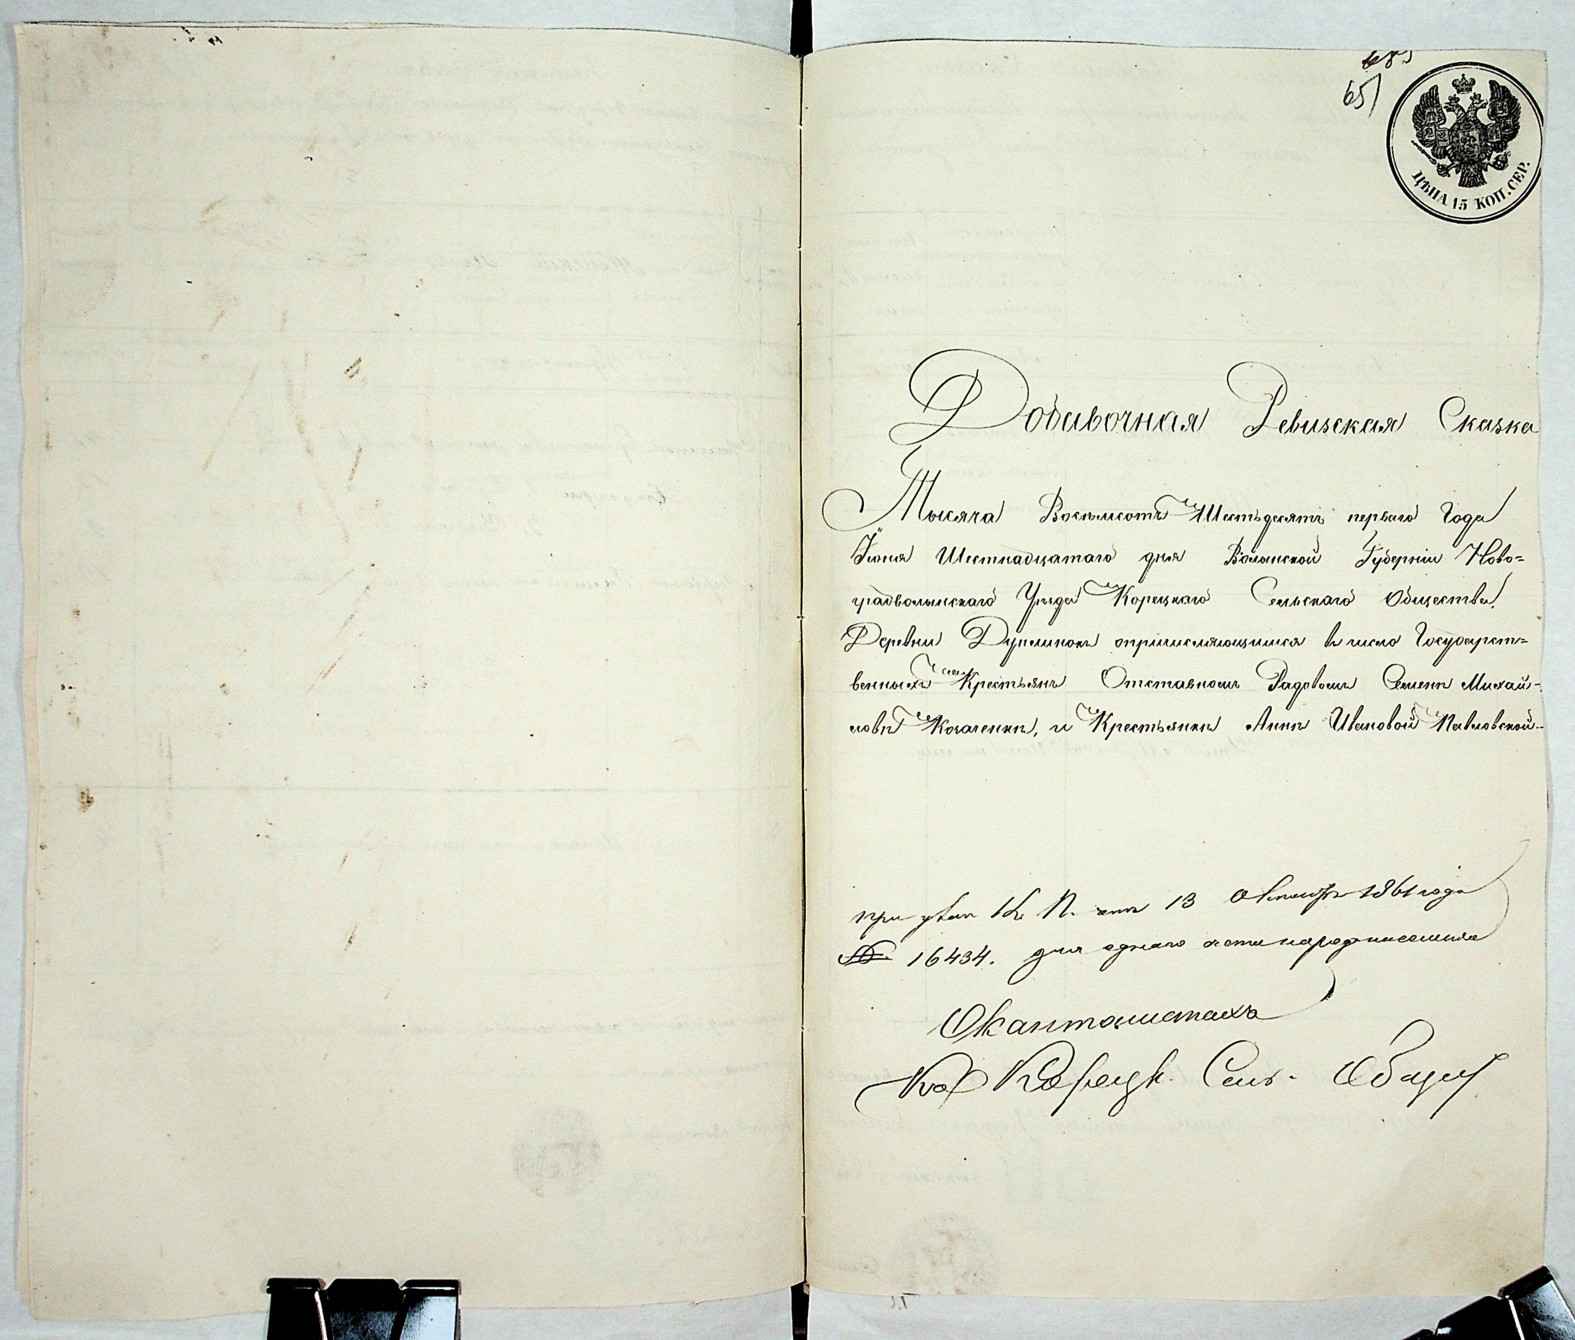 651
ЦѢНА 15 КОП. СЕР.
Добавочная Ревизская Сказка
Тысяча Восемсотъ Шестьдесятъ перваго Года
Іюня Шестнадцатаго дня Волынской Губерніи Ново=
градволынскаго Уѣзда Корецкаго Сельскаго Общества,
Деревни о причисляющимся въ число Государст=
венныхъ Крестьянъ Отставномъ Рядовомъ Семенѣ Михай-
ловѣ и Крестьянкѣ Аннѣ Ивановой Павловской.
при указѣ К. П. отъ 13 Октября 1861 года
№ 16434. для
О кантонистахъ
По Корецк. Сель. Общ.